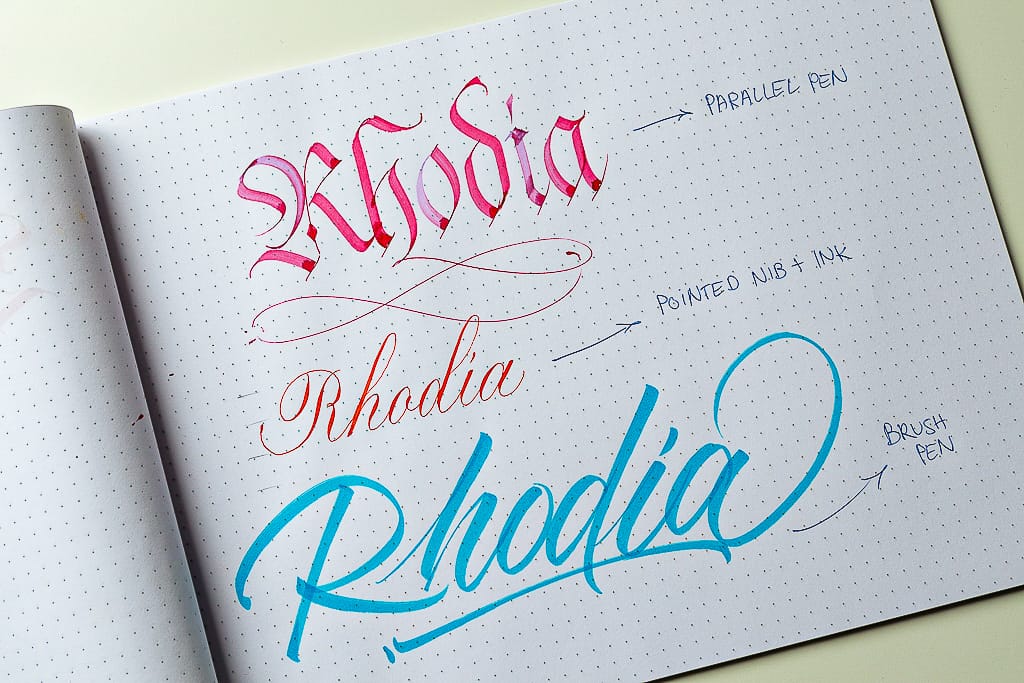 Rhodia
PARALLEL PEN
Rhodia
POINTED NIB + INK
Rhodia
BRUSH
PEN